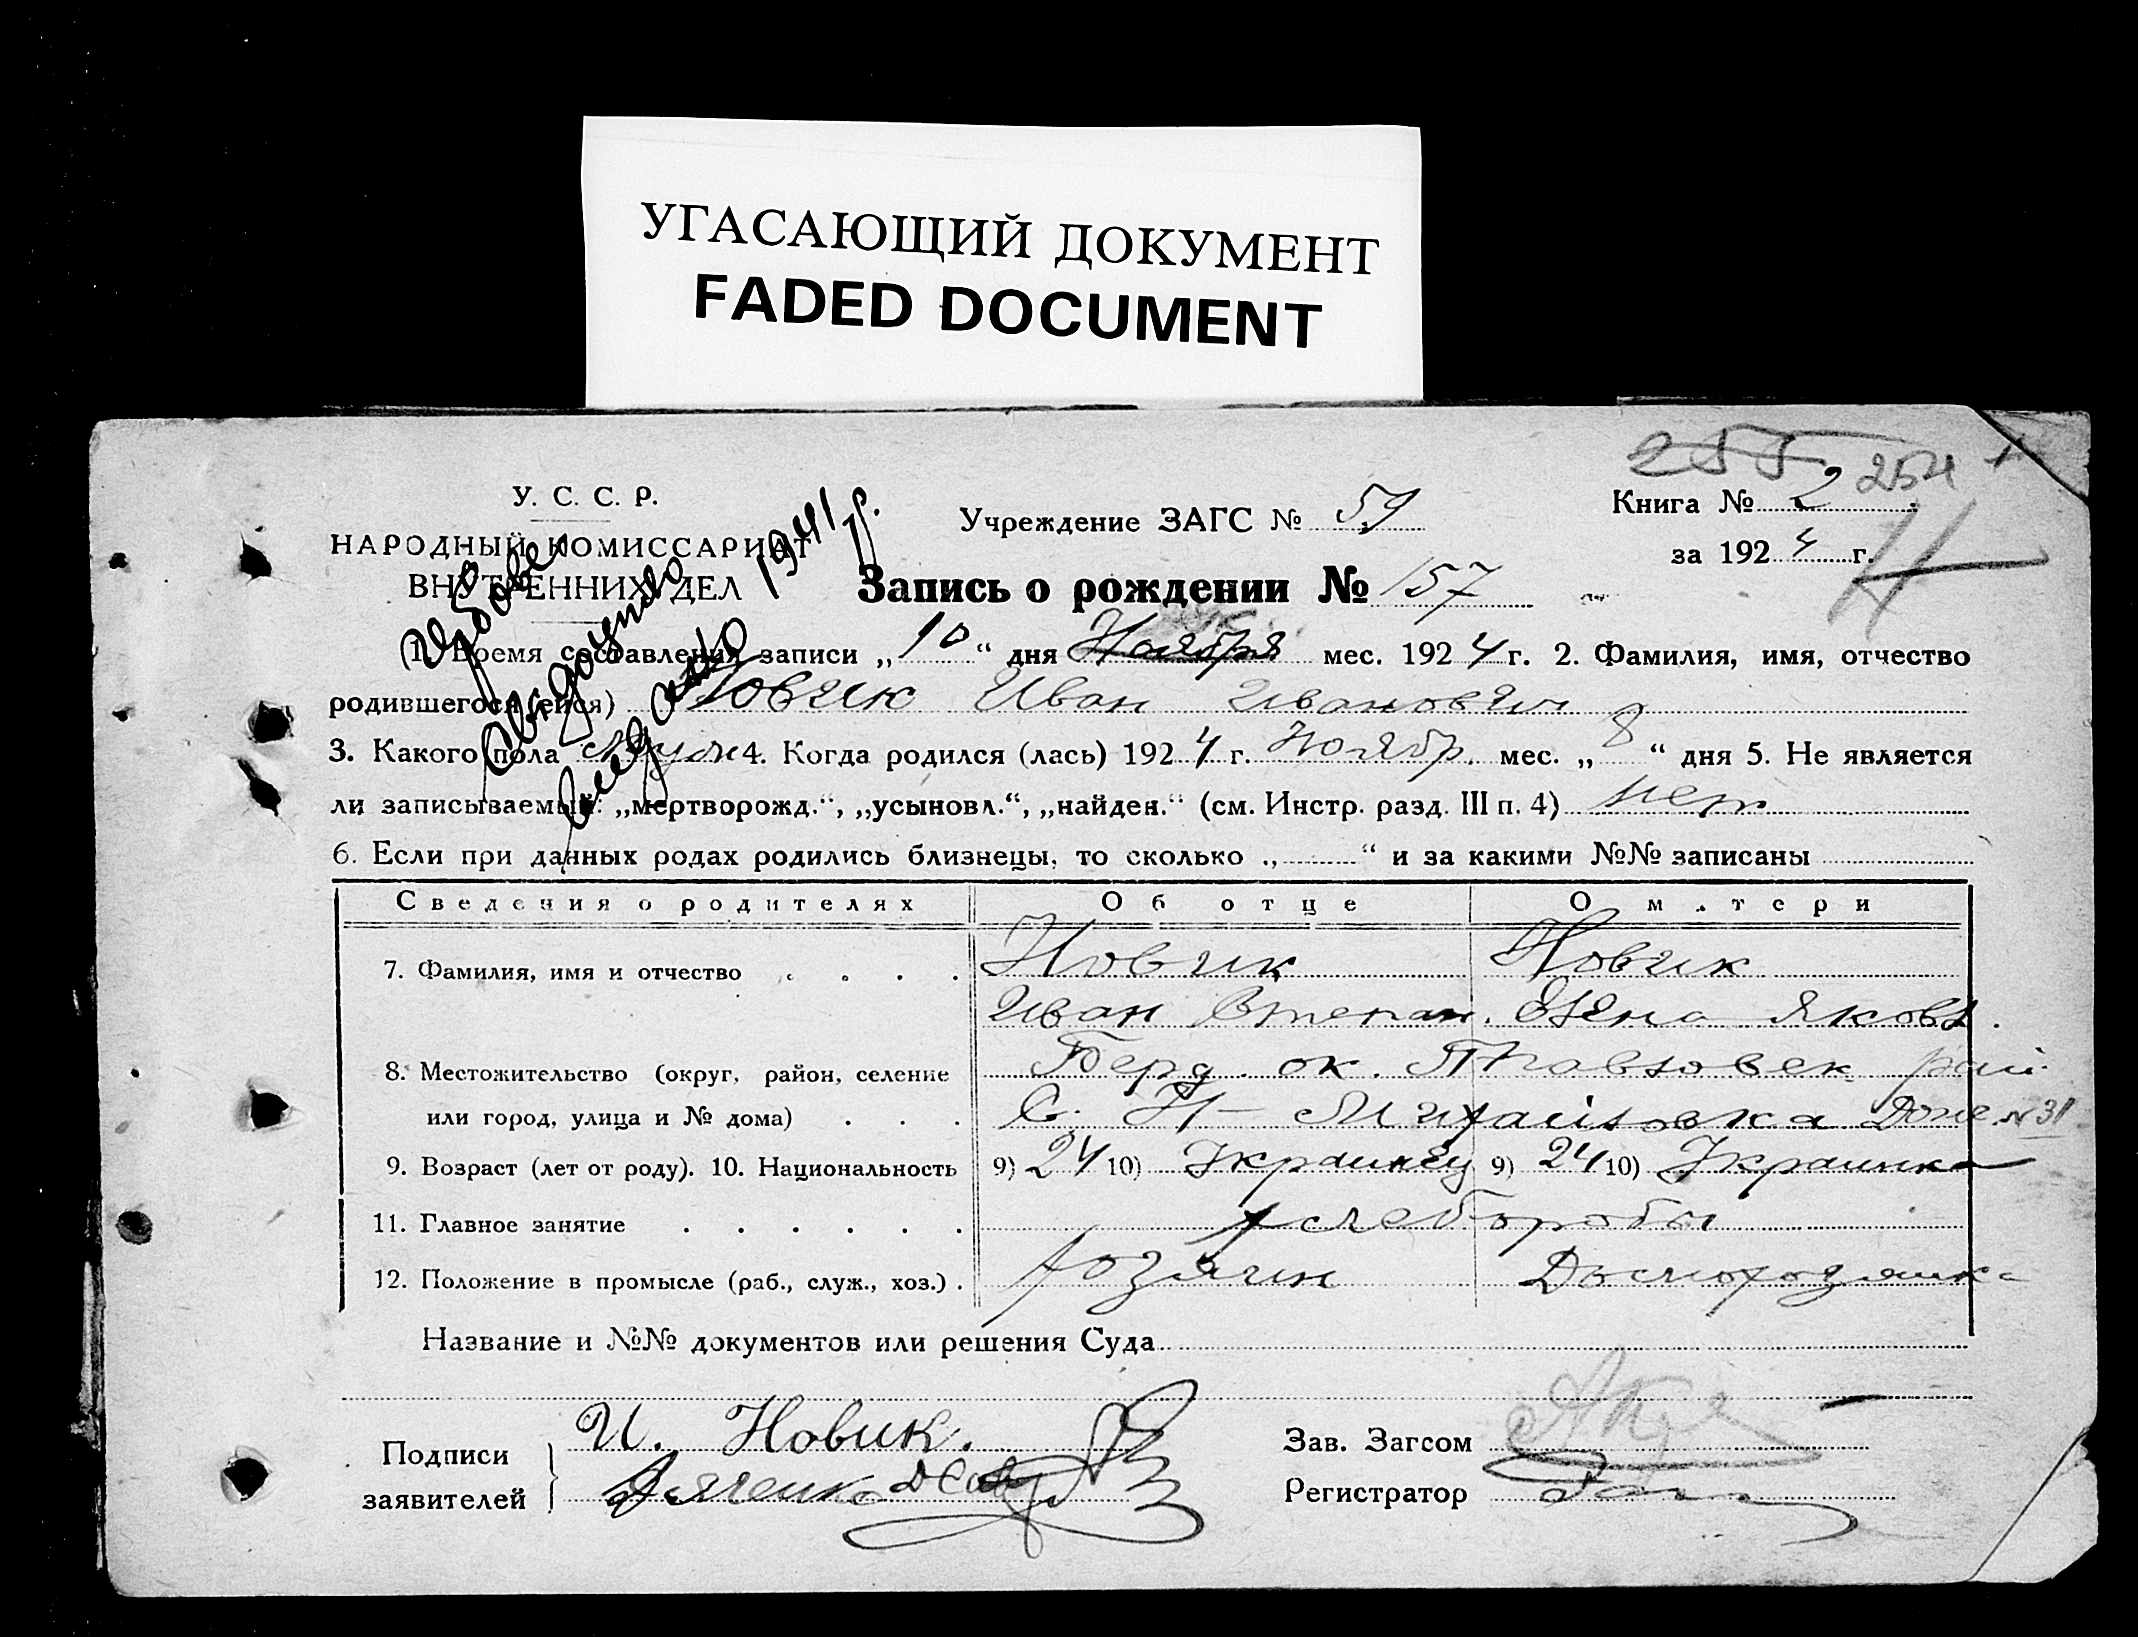 УГАСАЮЩИЙ ДОКУМЕНТ
FADED DOCUMENT
255 254
У. С. С. Р.
НАРОДНЫЙ КОМИССАРИАТ
ВНУТРЕННИХ ДЕЛ
1941 г.
Учреждение ЗАГС № 59
Книга № 2
за 1924 г.
Запись о рождении № 157
1. Время составления записи „10“ дня Ноября мес. 1924 г. 2. Фамилия, имя, отчество
родившегося (ейся) Новик Иван Иванович
3. Какого пола муж 4. Когда родился (лась) 1924 г. Ноябр. мес. „8“ дня 5. Не является
ли записываемый: „мертворожд.“, „усыновл.“, „найден.“ (см. Инстр. разд. III п. 4) нет
6. Если при данных родах родились близнецы, то сколько „ “ и за какими №№ записаны
Сведения о родителях Об отце О матери
7. Фамилия, имя и отчество Новик Новик
Иван Степан. Яковл.
8. Местожительство (округ, район, селение Берд. ок. рай.
или город, улица и № дома) С. Н-Михайловка Дом № 31
9. Возраст (лет от роду). 10. Национальность 9) 24 10) Украинец 9) 24 10) Украинка
11. Главное занятие хлеборобы
12. Положение в промысле (раб., служ., хоз.) Хозяин Домохозяйка
Название и №№ документов или решения Суда
Подписи заявителей И. Новик.
Зав. Загсом
Регистратор